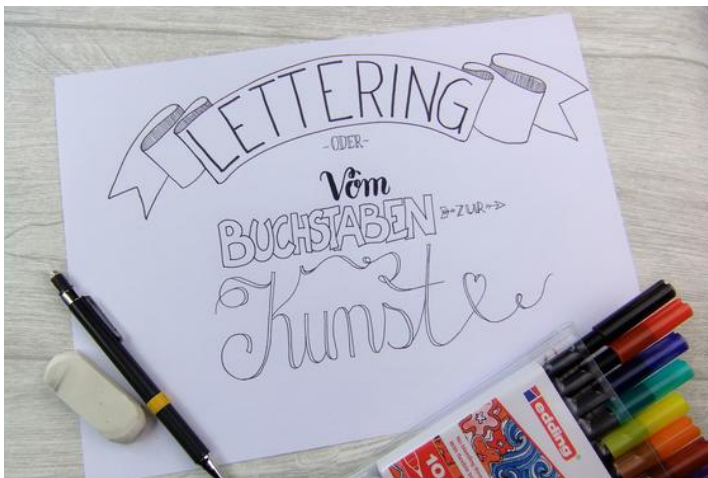 LETTERING
-ODER-
Vom
BUCHSTABEN ZUR
Kunst
edding
10